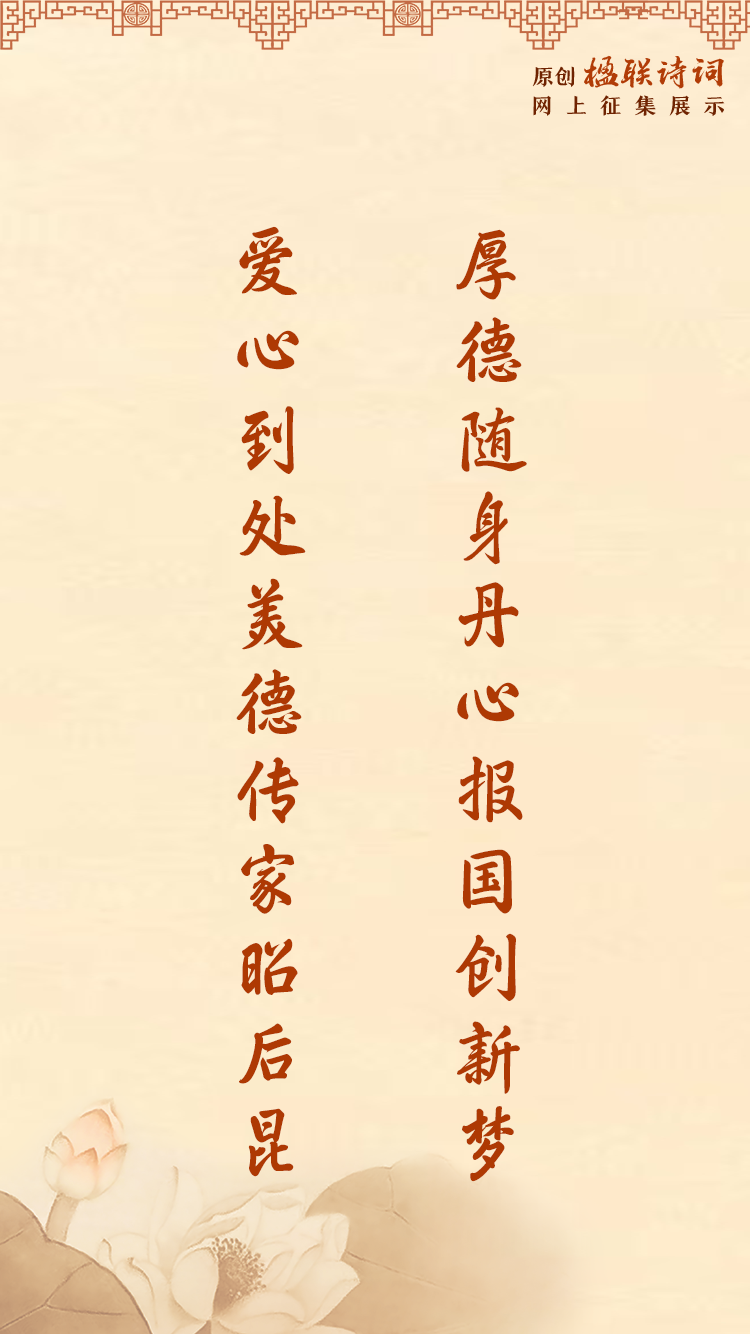 原创 楹联诗词
网上征集展示
厚德随身丹心报国创新梦
爱心到处美德传家昭后昆